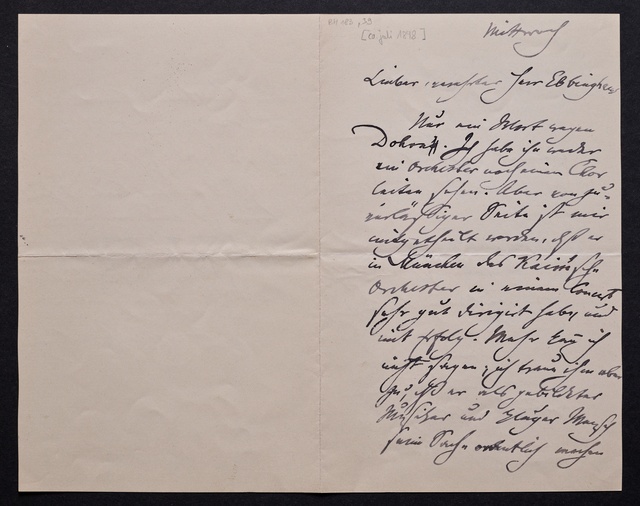 [20 Juli 1898]
Mittwoch
Lieber, verehrter Herr Ebbinghaus
Nur ein Wort wegen
Dohrn. Ich habe ihn weder
ein Orchester noch einen Chor
leiten sehen. Aber von zu-
verlässiger Seite ist mir
mitgetheilt worden, daß er
in München das Kaim'sche
Orchester in einem Concert
sehr gut dirigirt habe, und
mit Erfolg. Mehr kann ich
nicht sagen; ich traue ihm aber
zu, daß er als gebildeter
Musiker und kluger Mensch
seine Sache ordentlich machen